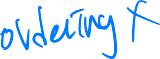 ordering f